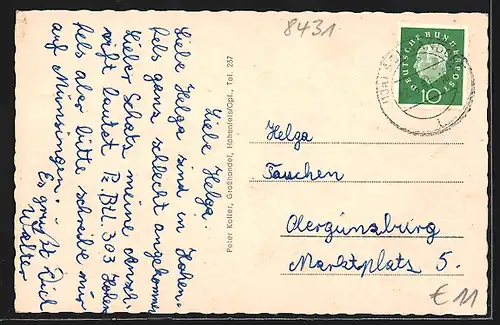 8431
Liebe Helga.
Liebe Helga sind in Hohen-
fels ganz schlecht angekommen
Lieber Schatz meine Ansch-
rift lautet Pz.Btl. 303 Hohen
fels aber bitte schreibe mir
auf Münsingen.
Es grüßt Dich
Walter
Peter Koller, Großhandel, Hohenfels/Opf., Tel. 237
DEUTSCHE BUNDESPOST
10
Helga
Tauchen
Obergünzburg
Marktplatz 5.
€ 11